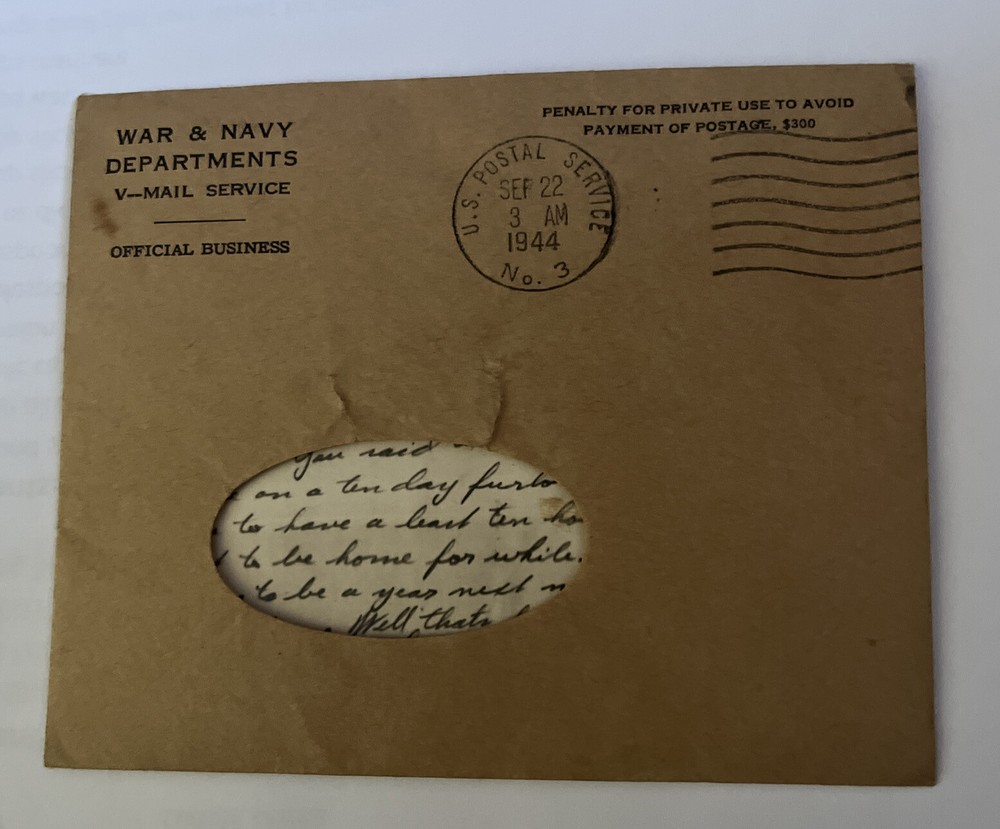 WAR & NAVY
DEPARTMENTS
V--MAIL SERVICE
OFFICIAL BUSINESS
PENALTY FOR PRIVATE USE TO AVOID
PAYMENT OF POSTAGE, $300
U.S. POSTAL SERVICE
SEP 22
3 AM
1944
No. 3
You said
on a ten day furlo
to have a least ten ho
to be home for while.
to be a year next m
Well thats